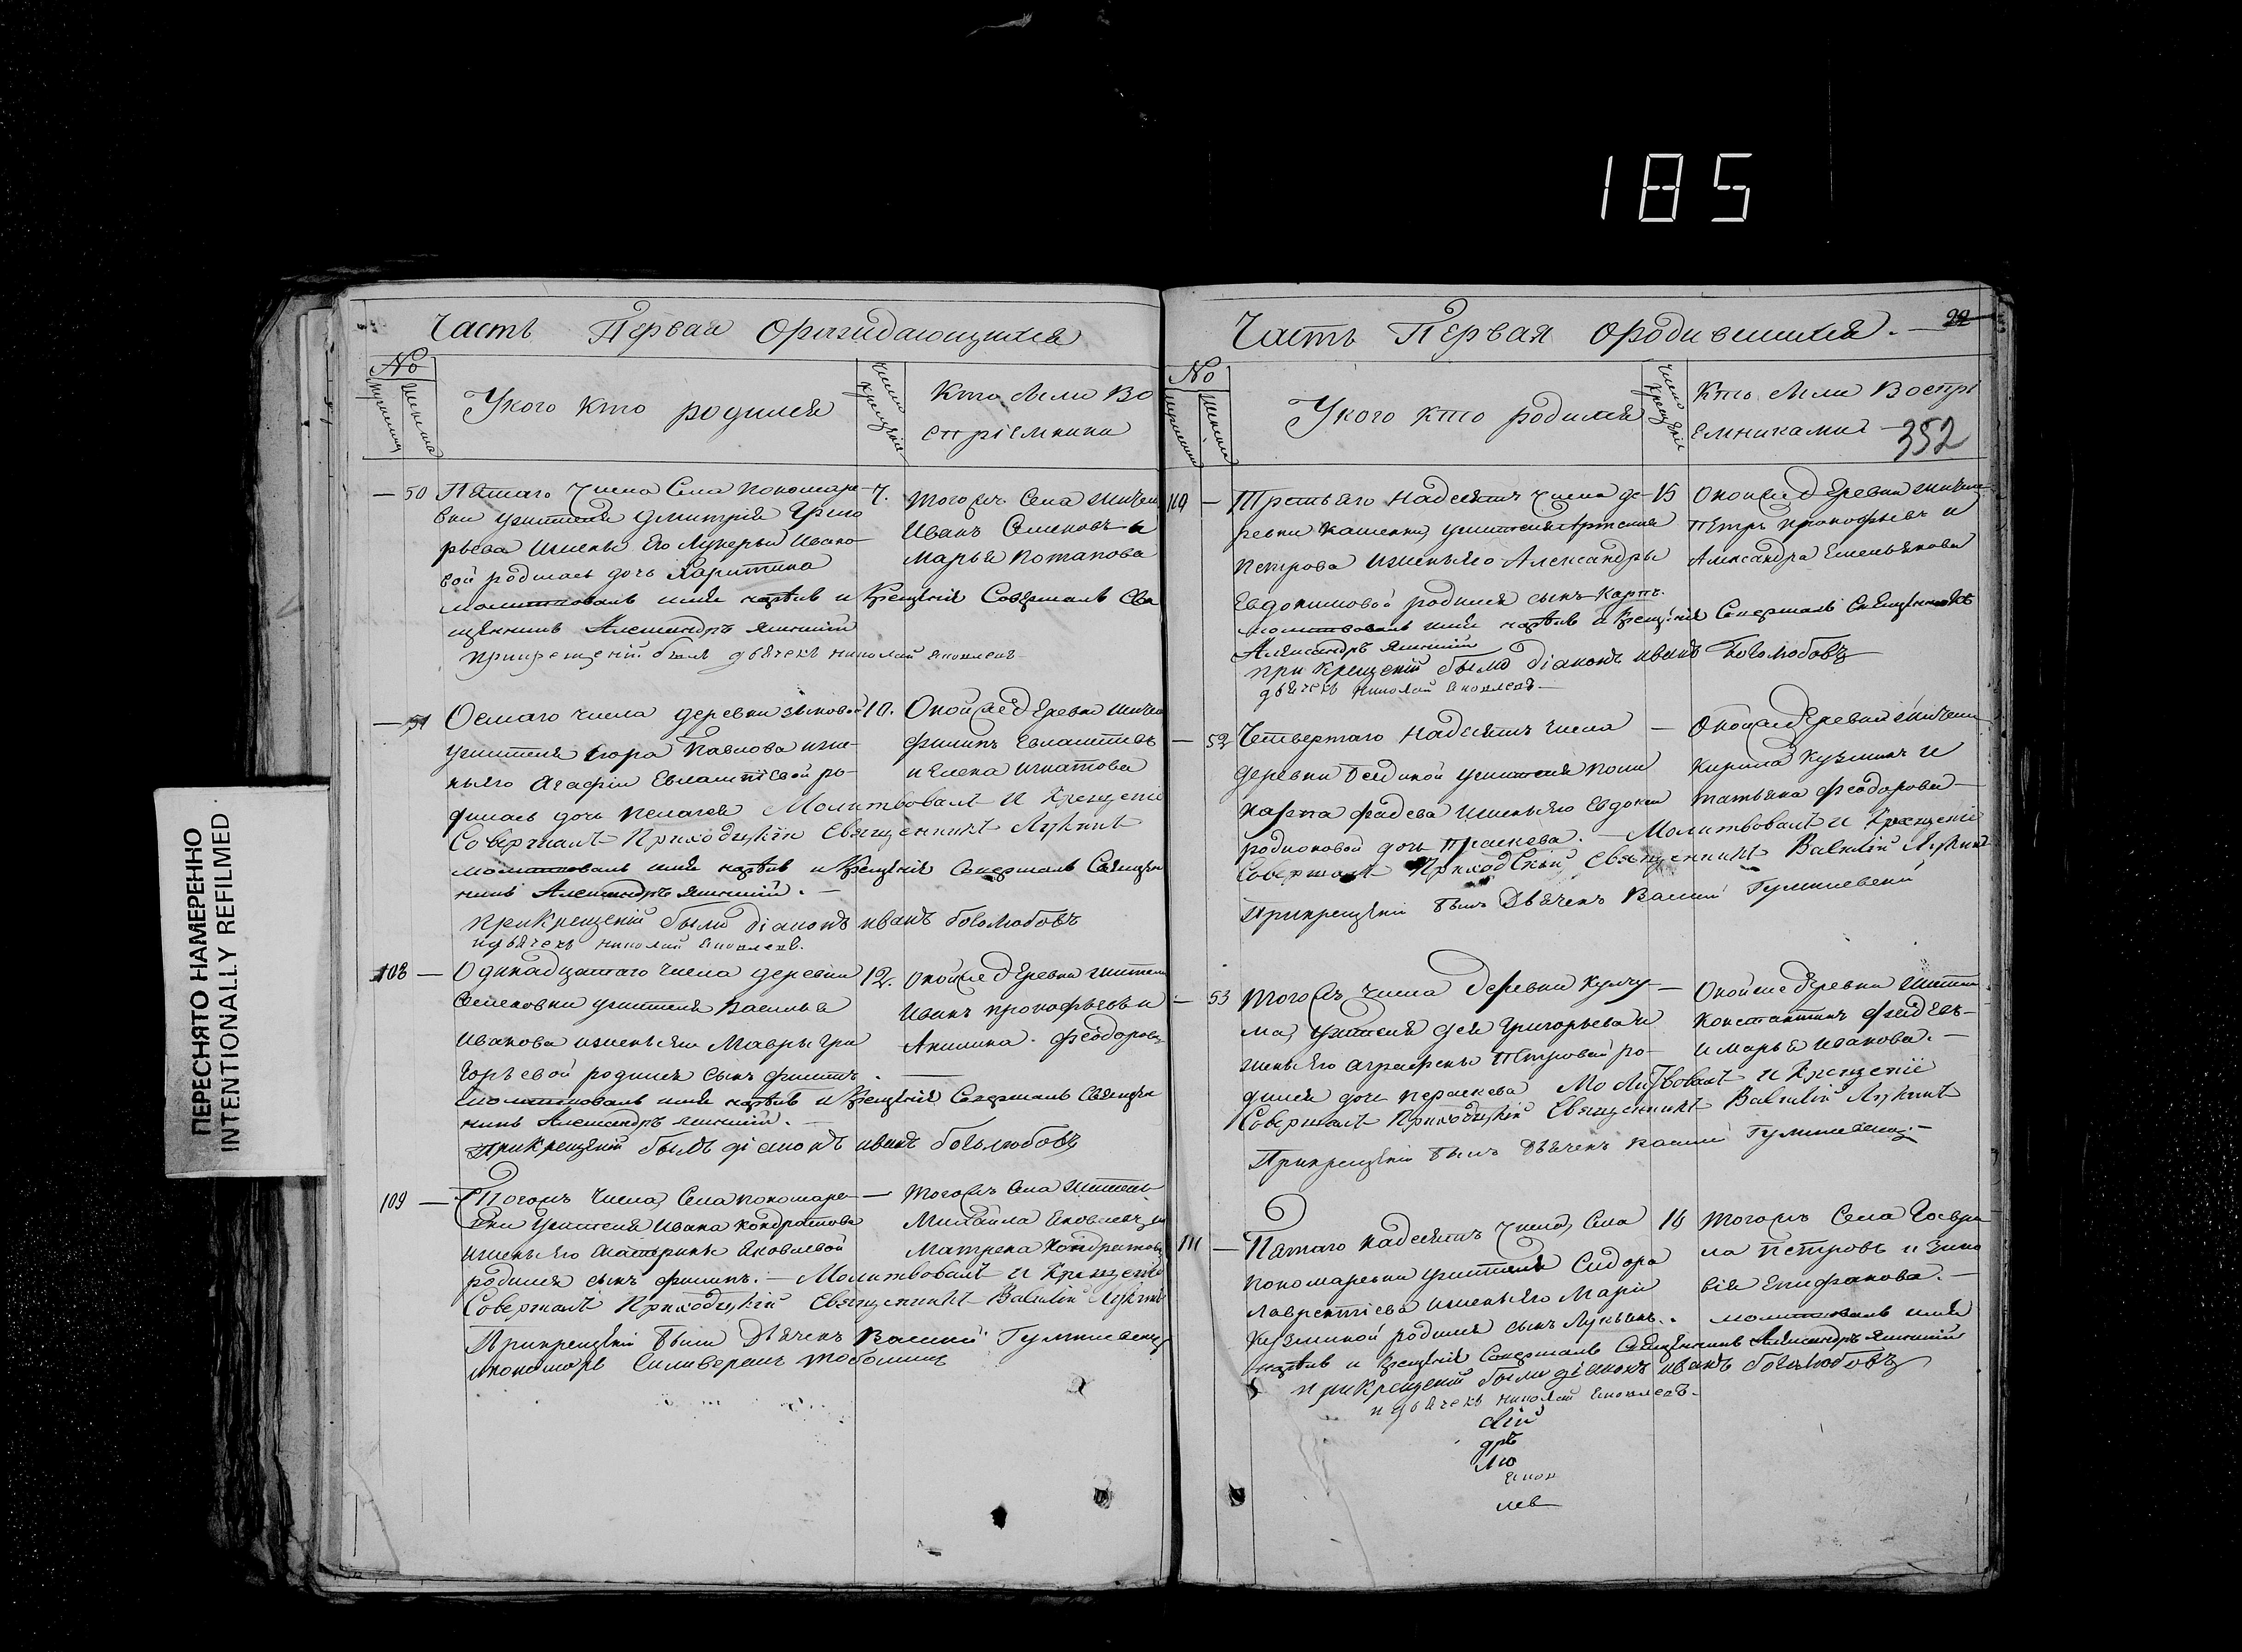 185
ПЕРЕСНЯТО НАМЕРЕННО
INTENTIONALLY REFILMED
Часть Первая ораждающихся
№
У кого кто родился
Число крещенія
Кто были Во
спріемники
— 50 Пятаго Числа Села Пономаре
вки жителя Дмитрія Григо
рьева и жены Его Лукерьи Ивано
вой родилась дочь Харитина
молитвовалъ имя нарѣкъ и Крещеніе Совершалъ Свя
щенникъ Александръ
При крещеніи былъ дьячекъ Николай Яковлевъ
7. того же Села жители
Иванъ Семеновъ и
Марья Потапова
— 51 Осмаго числа деревни
жителя Егора Павлова и же
ны его Агафіи Евлампіевой ро
дилась дочь Пелагея Молитвовалъ и Крещеніе
Совершалъ Приходскій Священникъ
молитвовалъ имя нарѣкъ и Крещеніе Совершалъ Священ
никъ Александръ
При Крещеніи были діаконъ иванъ боголюбовъ
и дьячекъ Николай Яковлевъ.
10. Оной же деревни жители
филипъ
и Елена Игнатова
108 — Одинадцатаго Числа деревни
Семеновки жителя Василья
Иванова и жены его Мавры Гри
горьевой родился сынъ филипъ
молитвовалъ имя нарѣкъ и Крещеніе Совершалъ Священ
никъ Александръ
При Крещеніи былъ діаконъ иванъ боголюбовъ
12. Оной же деревни жители
Иванъ прокофьевъ и
Акилина феодорова
109 — Того жъ Числа, Села пономаре
вки жителя Ивана Кондратова
и жены Его Екатерины Яковлевой
родился сынъ филипъ. — Молитвовалъ и Крещеніе
Совершалъ Приходскій Священникъ Василій
При крещеніи были Дьячекъ Василій
и пономарь
— того жъ Села жители
Михайла Яковлевъ и
Матрена Кондратова
Часть Первая ородившихся. — 22
№
У кого кто родился
Число Крещенія
Кто были Воспрі
Емниками
352
110 — Третьяго надесять числа де
ревни Кашенки, жителя Артемія
Петрова и жены его Александры
Евдокимовой родился сынъ Карпъ.
молитвовалъ имя нарѣкъ и Крещеніе Совершалъ Священникъ
Александръ
При Крещеніи были діаконъ иванъ боголюбовъ
дьячекъ Николай Яковлевъ —
15 Оной же деревни жители
Петръ прокофьевъ и
Александра Емельянова
— 52 Четвертаго надесять числа
деревни жителя Поли
карпа фадеева и жены его Евдокіи
родіоновой дочь Праскева. — Молитвовалъ и Крещеніе
Совершалъ Приходскій Священникъ Василій
При крещеніи былъ Дьячекъ Василій
— Оной же деревни жители
Кирила Кузминъ и
татьяна феодорова —
— 53 того жъ числа деревни Кулчу
ма, жителя Григорьева и
жены его аграфены Петровой ро
дился дочь Параскева Молитвовалъ и Крещеніе
Совершалъ Приходскій Священникъ Василій
При крещеніи былъ Дьячекъ Василій
— Оной же деревни жители
Константинъ фадеевъ
и марья иванова. —
111 — Пятаго надесять Числа, Села
пономаревки жителя Сидора
лаврентіева и жены его Маріи
Кузминой родился сынъ Лукьянъ. молитвовалъ имя
нарѣкъ и Крещеніе Совершалъ Священникъ Александръ
при Крещеніи были діаконъ иванъ боголюбовъ
и дьячекъ Николай Яковлевъ.
16 того жъ Села Гаври
ла Петровъ и Зино
вія Епифанова. —
дръ
лю
яков
лев